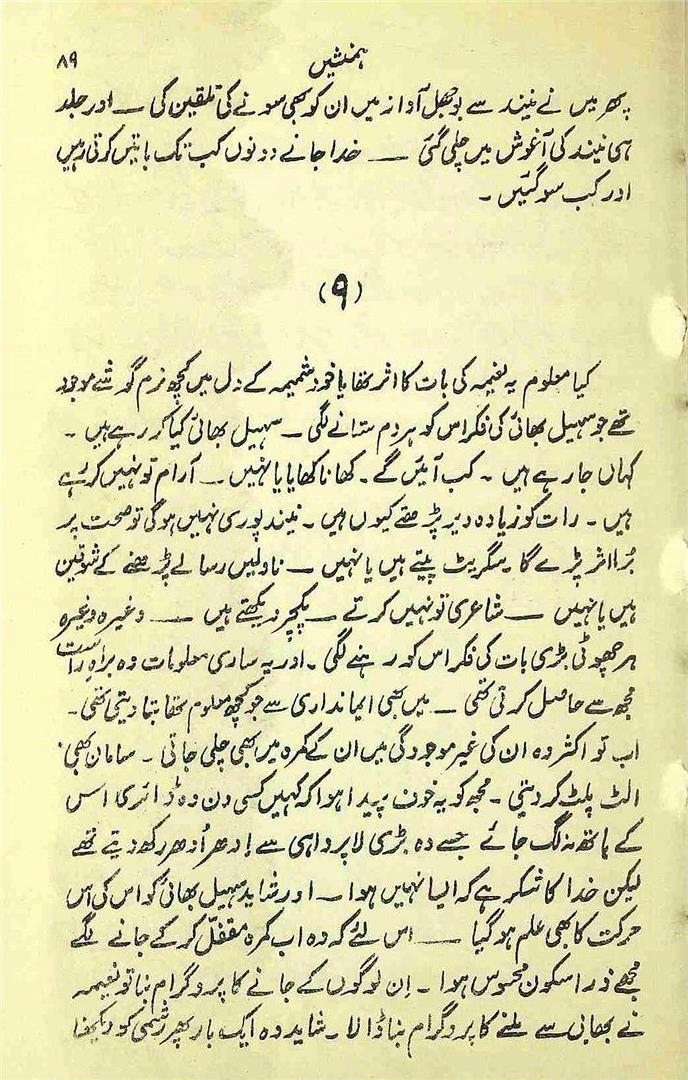 ہمنشیں
۸۹
پھر میں نے نیند سے بوجھل آواز میں ان کو بھی سونے کی تلقین کی — اور جلد
ہی نیند کی آغوش میں چلی گئی — خدا جانے دونوں کب تک باتیں کرتی رہیں
اور کب سو گئیں ۔
(۹)
کیا معلوم یہ نعیمہ کی بات کا اثر تھا یا خود شمیمہ کے دل میں کچھ نرم گوشے موجود
تھے جو سہیل بھائی کی فکر اس کو ہر دم ستانے لگی ۔ سہیل بھائی کیا کر رہے ہیں ۔
کہاں جا رہے ہیں ۔ کب آئیں گے ۔ کھانا کھایا یا نہیں ۔ آرام تو نہیں کر رہے
ہیں ۔ رات کو زیادہ دیر پڑھتے کیوں ہیں ۔ نیند پوری نہیں ہوگی تو صحت پر
بُرا اثر پڑے گا ۔ سگریٹ پیتے ہیں یا نہیں — ناولیں رسالے پڑھنے کے شوقین
ہیں یا نہیں — شاعری تو نہیں کرتے — پکچر دیکھتے ہیں — وغیرہ وغیرہ
ہر چھوٹی بڑی بات کی فکر اس کو رہنے لگی ۔ اور یہ ساری معلومات وہ براہِ راست
مجھ سے حاصل کرتی تھی — میں بھی ایمانداری سے جو کچھ معلوم تھا بتا دیتی تھی ۔
اب تو اکثر وہ ان کی غیر موجودگی میں ان کے کمرہ میں بھی چلی جاتی ۔ سامان بھی
الٹ پلٹ کر دیتی ۔ مجھ کو یہ خوف پیدا ہوا کہ کہیں کسی دن وہ ڈائری اس
کے ہاتھ نہ لگ جائے جسے وہ بڑی لاپرواہی سے اِدھر اُدھر رکھ دیتے تھے
لیکن خدا کا شکر ہے کہ ایسا نہیں ہوا — اور شاید سہیل بھائی کو اس کی اس
حرکت کا بھی علم ہو گیا — اس لئے کہ وہ اب کمرہ مقفّل کر کے جانے لگے
مجھے ذرا سکون محسوس ہوا ۔ اِن لوگوں کے جانے کا پروگرام بنا تو نعیمہ
نے بھابی سے ملنے کا پروگرام بنا ڈالا ۔ شاید وہ ایک بار پھر رشمی کو دیکھنا